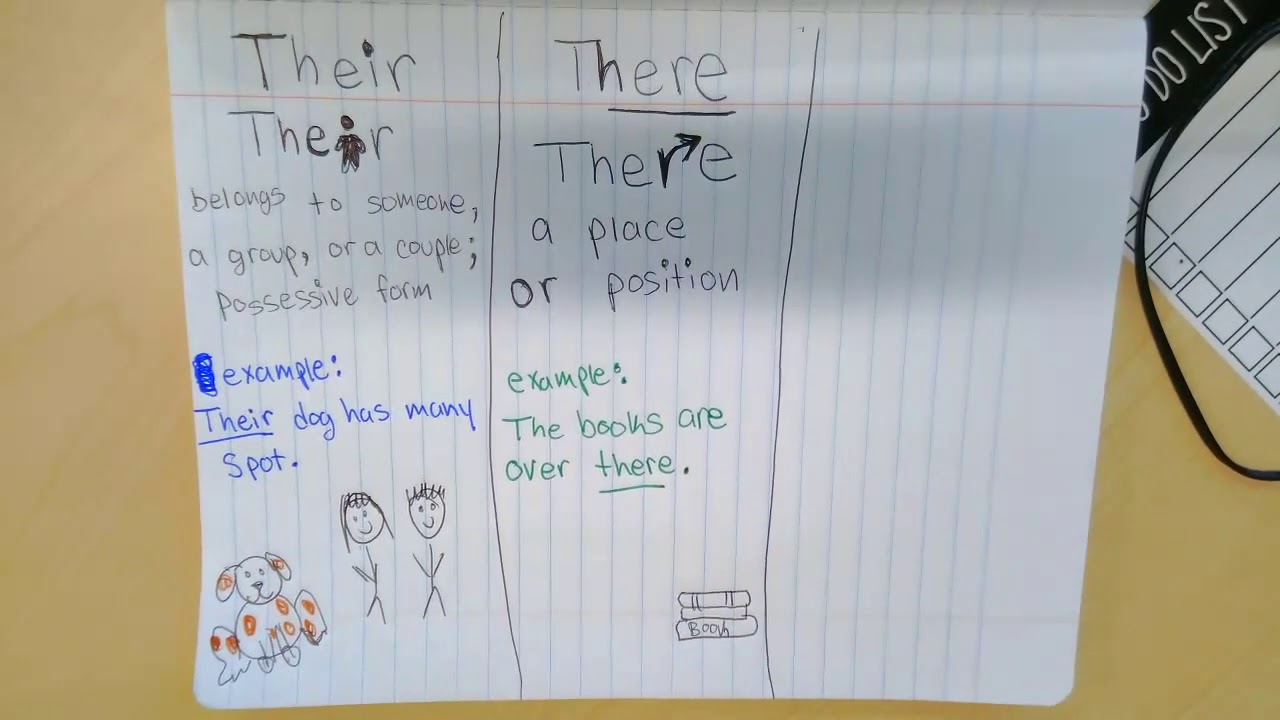 Their
Their
belongs to someone,
a group, or a couple;
possessive form
example:
Their dog has many
spot.
There
There
a place
or position
example:
The books are
over there.
Book
DO LIST